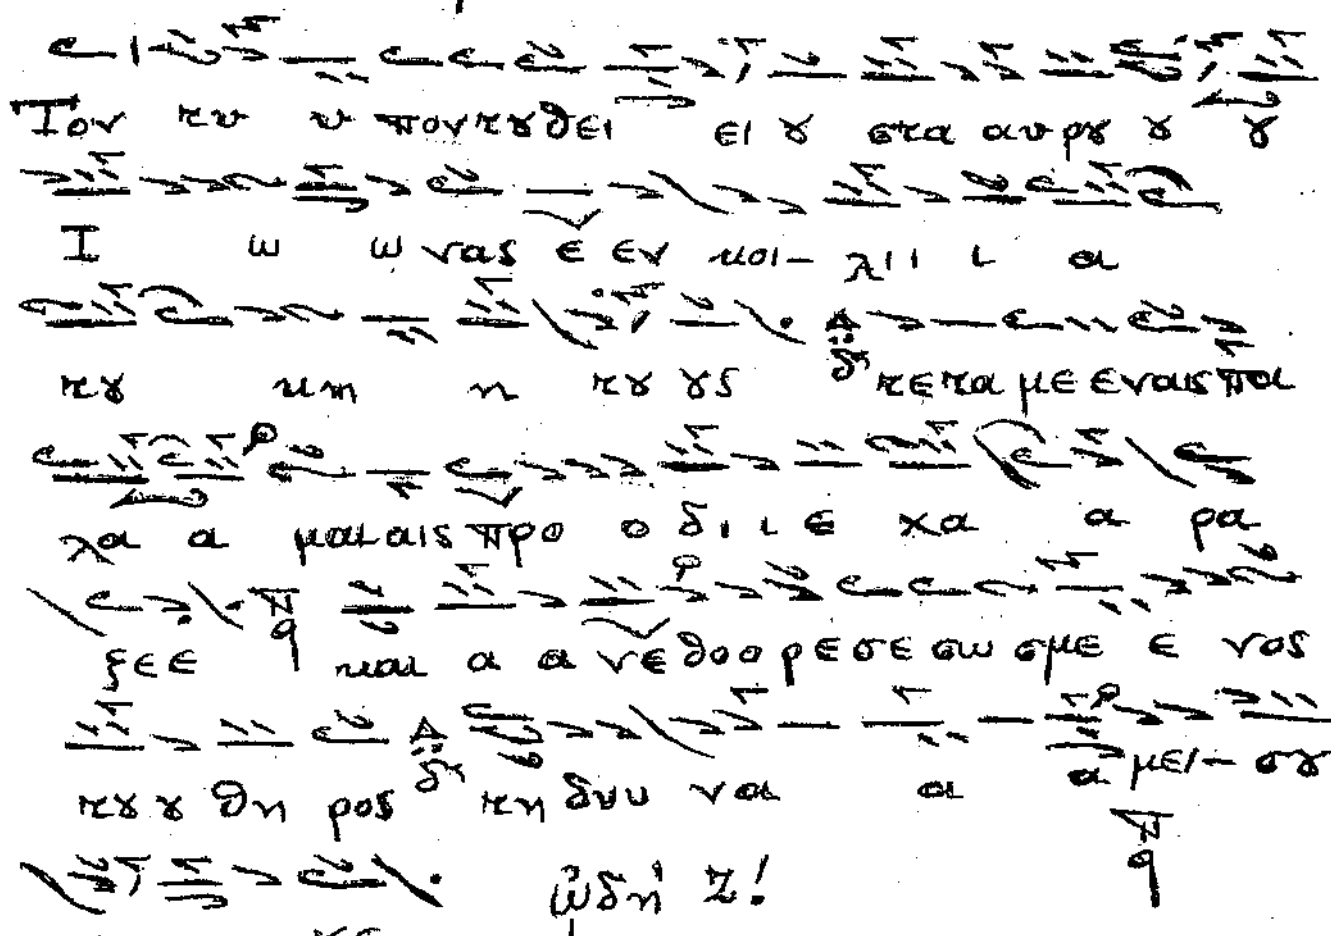 Τον τυ υ πον τȣ θει ει ȣ στα αυ ρȣ ȣ ȣ
Ι ω ω νας ε εν κοι λι ι ι α
τȣ κη η τȣ ȣς δι τε τα με ε ναις πα
λα α μαι αις προ ο δι ι ε χα α ρα
ξε ε π q και α α νε θο ο ρε σε σω σμε ε νος
τȣ ȣ θη ρος δι τη δυυ να α α μει σȣ
π q
ᾠδή ζ!